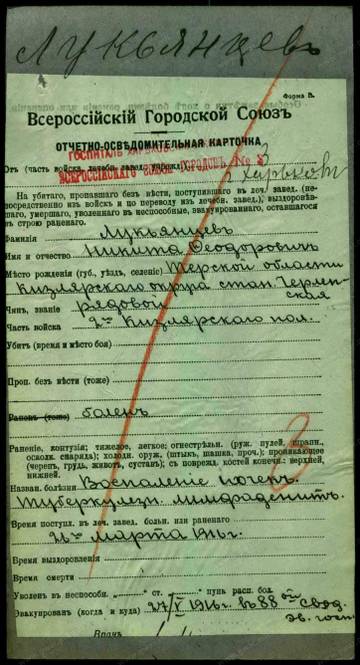 Лукьянцевъ
Форма В.
Всероссійскій Городской Союзъ
ОТЧЕТНО-ОСВѢДОМИТЕЛЬНАЯ КАРТОЧКА
ГОСПИТАЛЬ
От (часть войска, лечебн. завед.
ВСЕРОССІЙСКАГО СОЮЗА ГОРОДОВЪ № 3
Харьковъ
На убитаго, пропавшаго безъ вѣсти, поступившаго въ леч. завед. (не-
посредственно изъ войскъ и по переводу из лечебн. завед.), выздоровѣв-
шаго, умершаго, уволеннаго въ неспособные, эвакуированнаго, оставшагося
въ строю раненаго.
Фамилія Лукьянцевъ
Имя и отчество Никита Ѳеодоровичъ
Мѣсто рожденія (губ., уѣздъ, селеніе) Терской области
Кизлярскаго округа стан.
ская
Чинъ, званіе рядовой
Часть войска 2го Кизлярскаго пол.
Убитъ (время и мѣсто боя)
Проп. безъ вѣсти (тоже)
Раненъ (тоже) боленъ
Раненіе, контузія; тяжелое, легкое; огнестрѣльн. (руж. пулей, шрапн.,
осколк. снаряда); холодн. оруж. (штыкъ, шашка, проч.); проникающее
(черепъ, грудь, животъ, суставъ); съ поврежд. костей конечн.: верхней,
нижней.
Назван. болѣзни Воспаленіе
Туберкулезн. лимфаденитъ.
Время поступл. въ леч. завед. больн. или раненаго
26го марта 1916 г.
Время выздоровленія
Время смерти
Уволенъ въ неспособн. ст. пунк. расп. бол.
Эвакуированъ (когда и куда) 27/V 1916 г. въ 88 ой свод.
эв. госп.
Врачъ